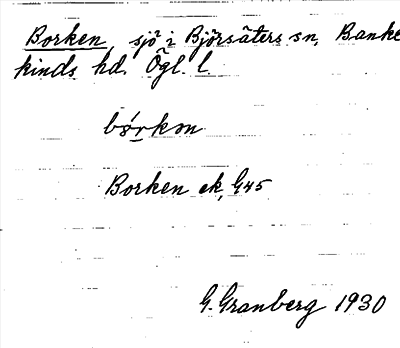 Borken, sjö i Björsäters sn, Banke
kinds hd. Ögl. l.
bórkən
Borken ek, G45
G. Granberg 1930